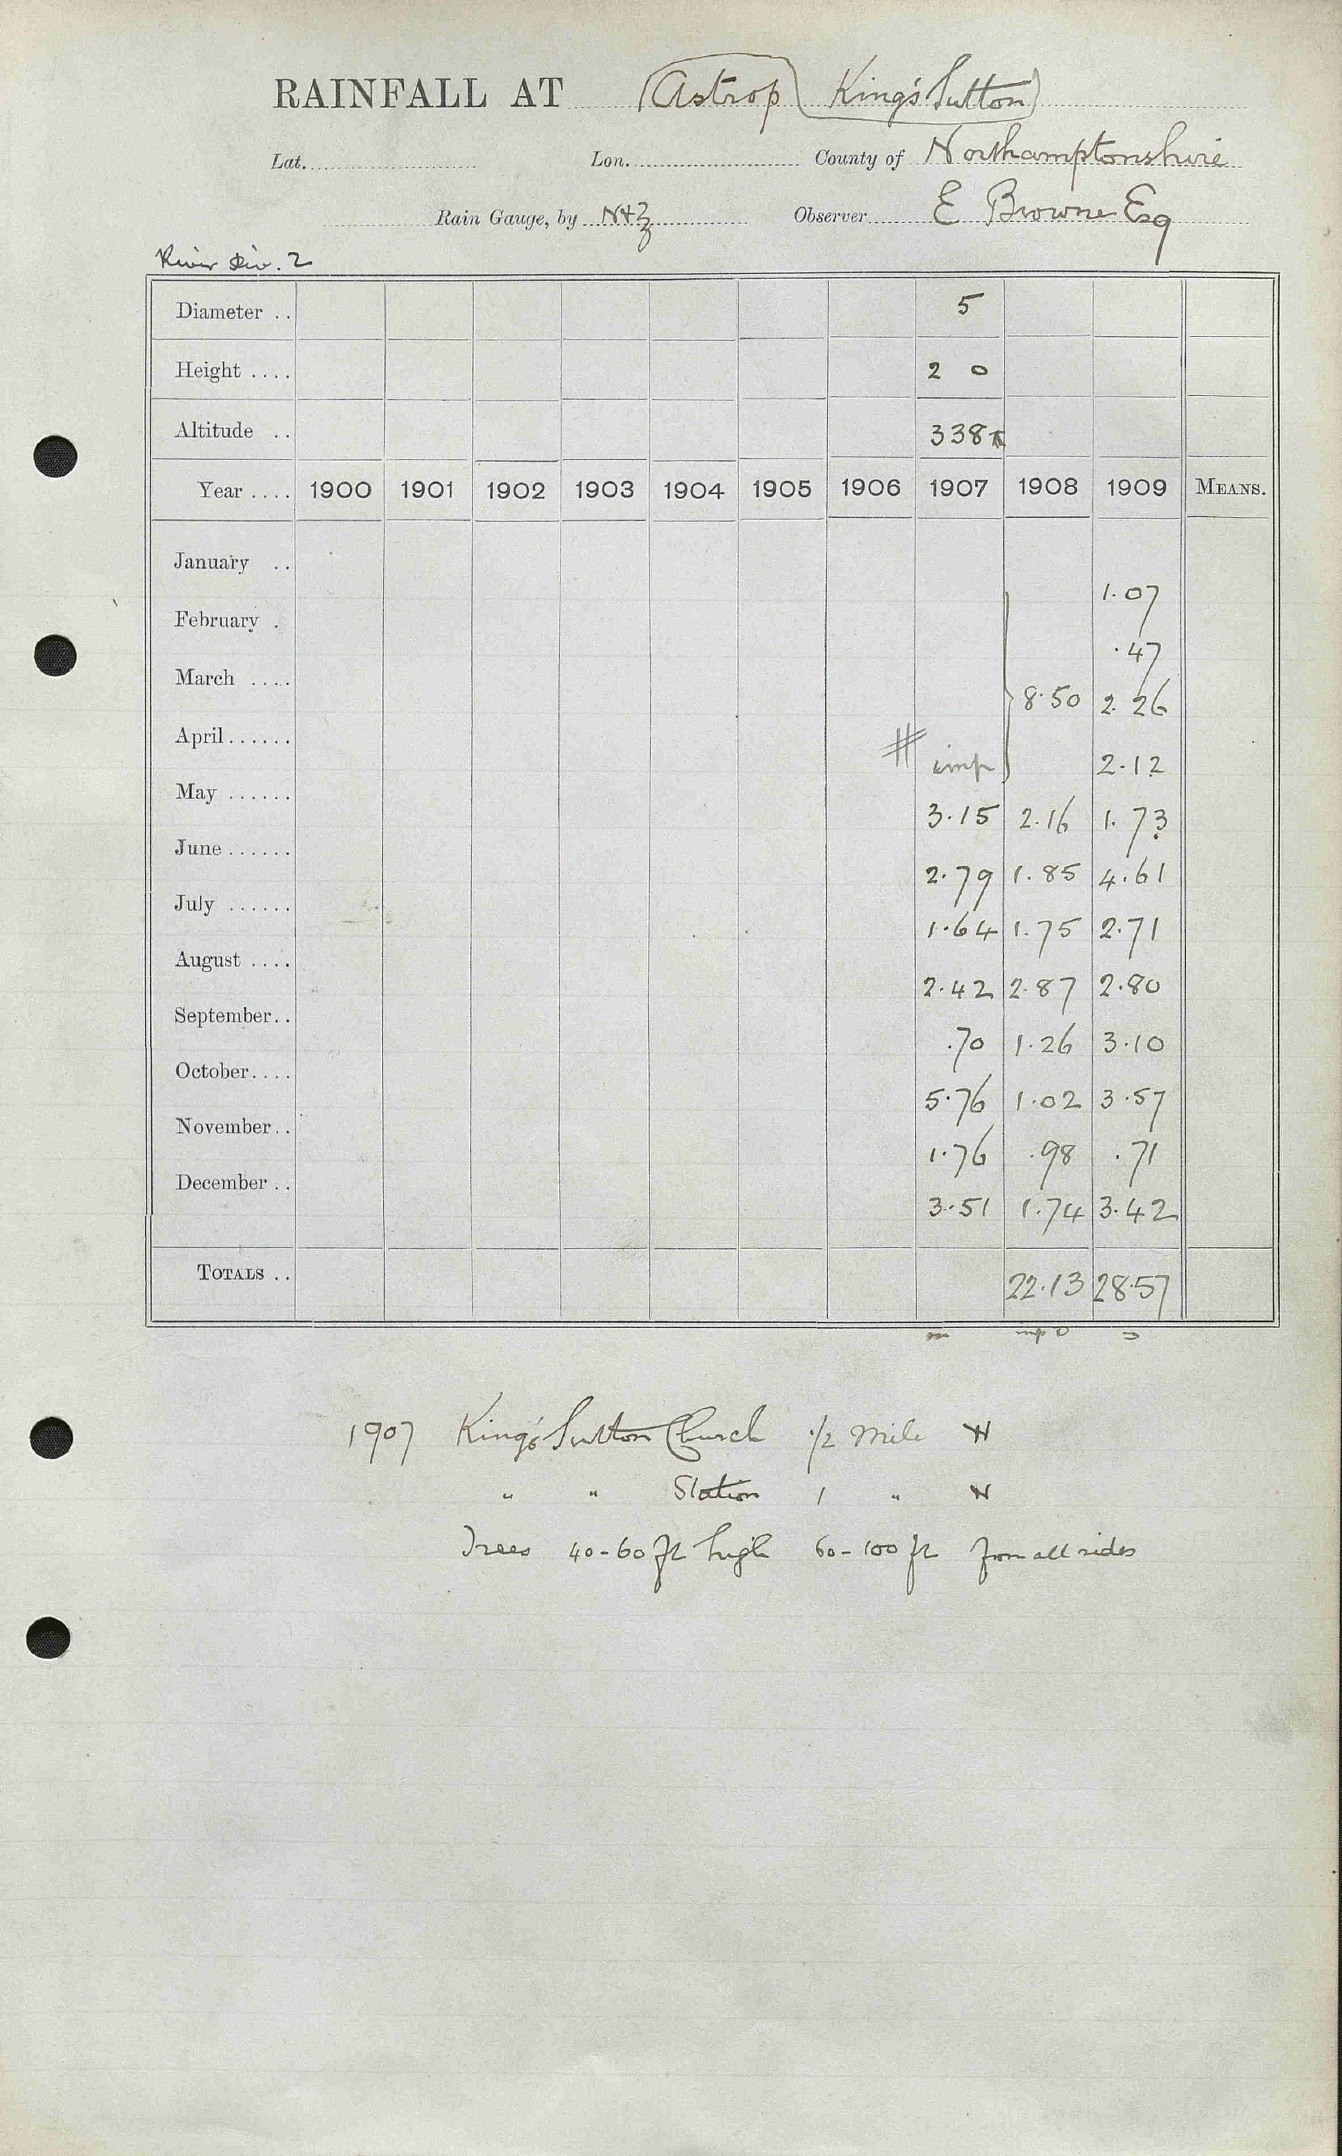 RAINFALL AT (Astrop) King's Sutton
Lat. Lon. County of Northamptonshire
Rain Gauge, by N+Z Observer E Browne Esq
River Div. 2
Diameter .. 5
Height .... 2 0
Altitude .. 338
Year .... 1900 1901 1902 1903 1904 1905 1906 1907 1908 1909 MEANS.
January .. 1.07
February . .47
March .... 8.50 2.26
April...... # imp 2.12
May ...... 3.15 2.16 1.73
June ...... 2.79 1.85 4.61
July ...... 1.64 1.75 2.71
August .... 2.42 2.87 2.80
September.. .70 1.26 3.10
October.... 5.76 1.02 3.57
November.. 1.76 .98 .71
December .. 3.51 1.74 3.42
TOTALS .. 22.13 28.57
1907 King's Sutton Church ½ mile N
" " Station 1 " N
Trees 40-60 ft high 60-100 ft from all sides